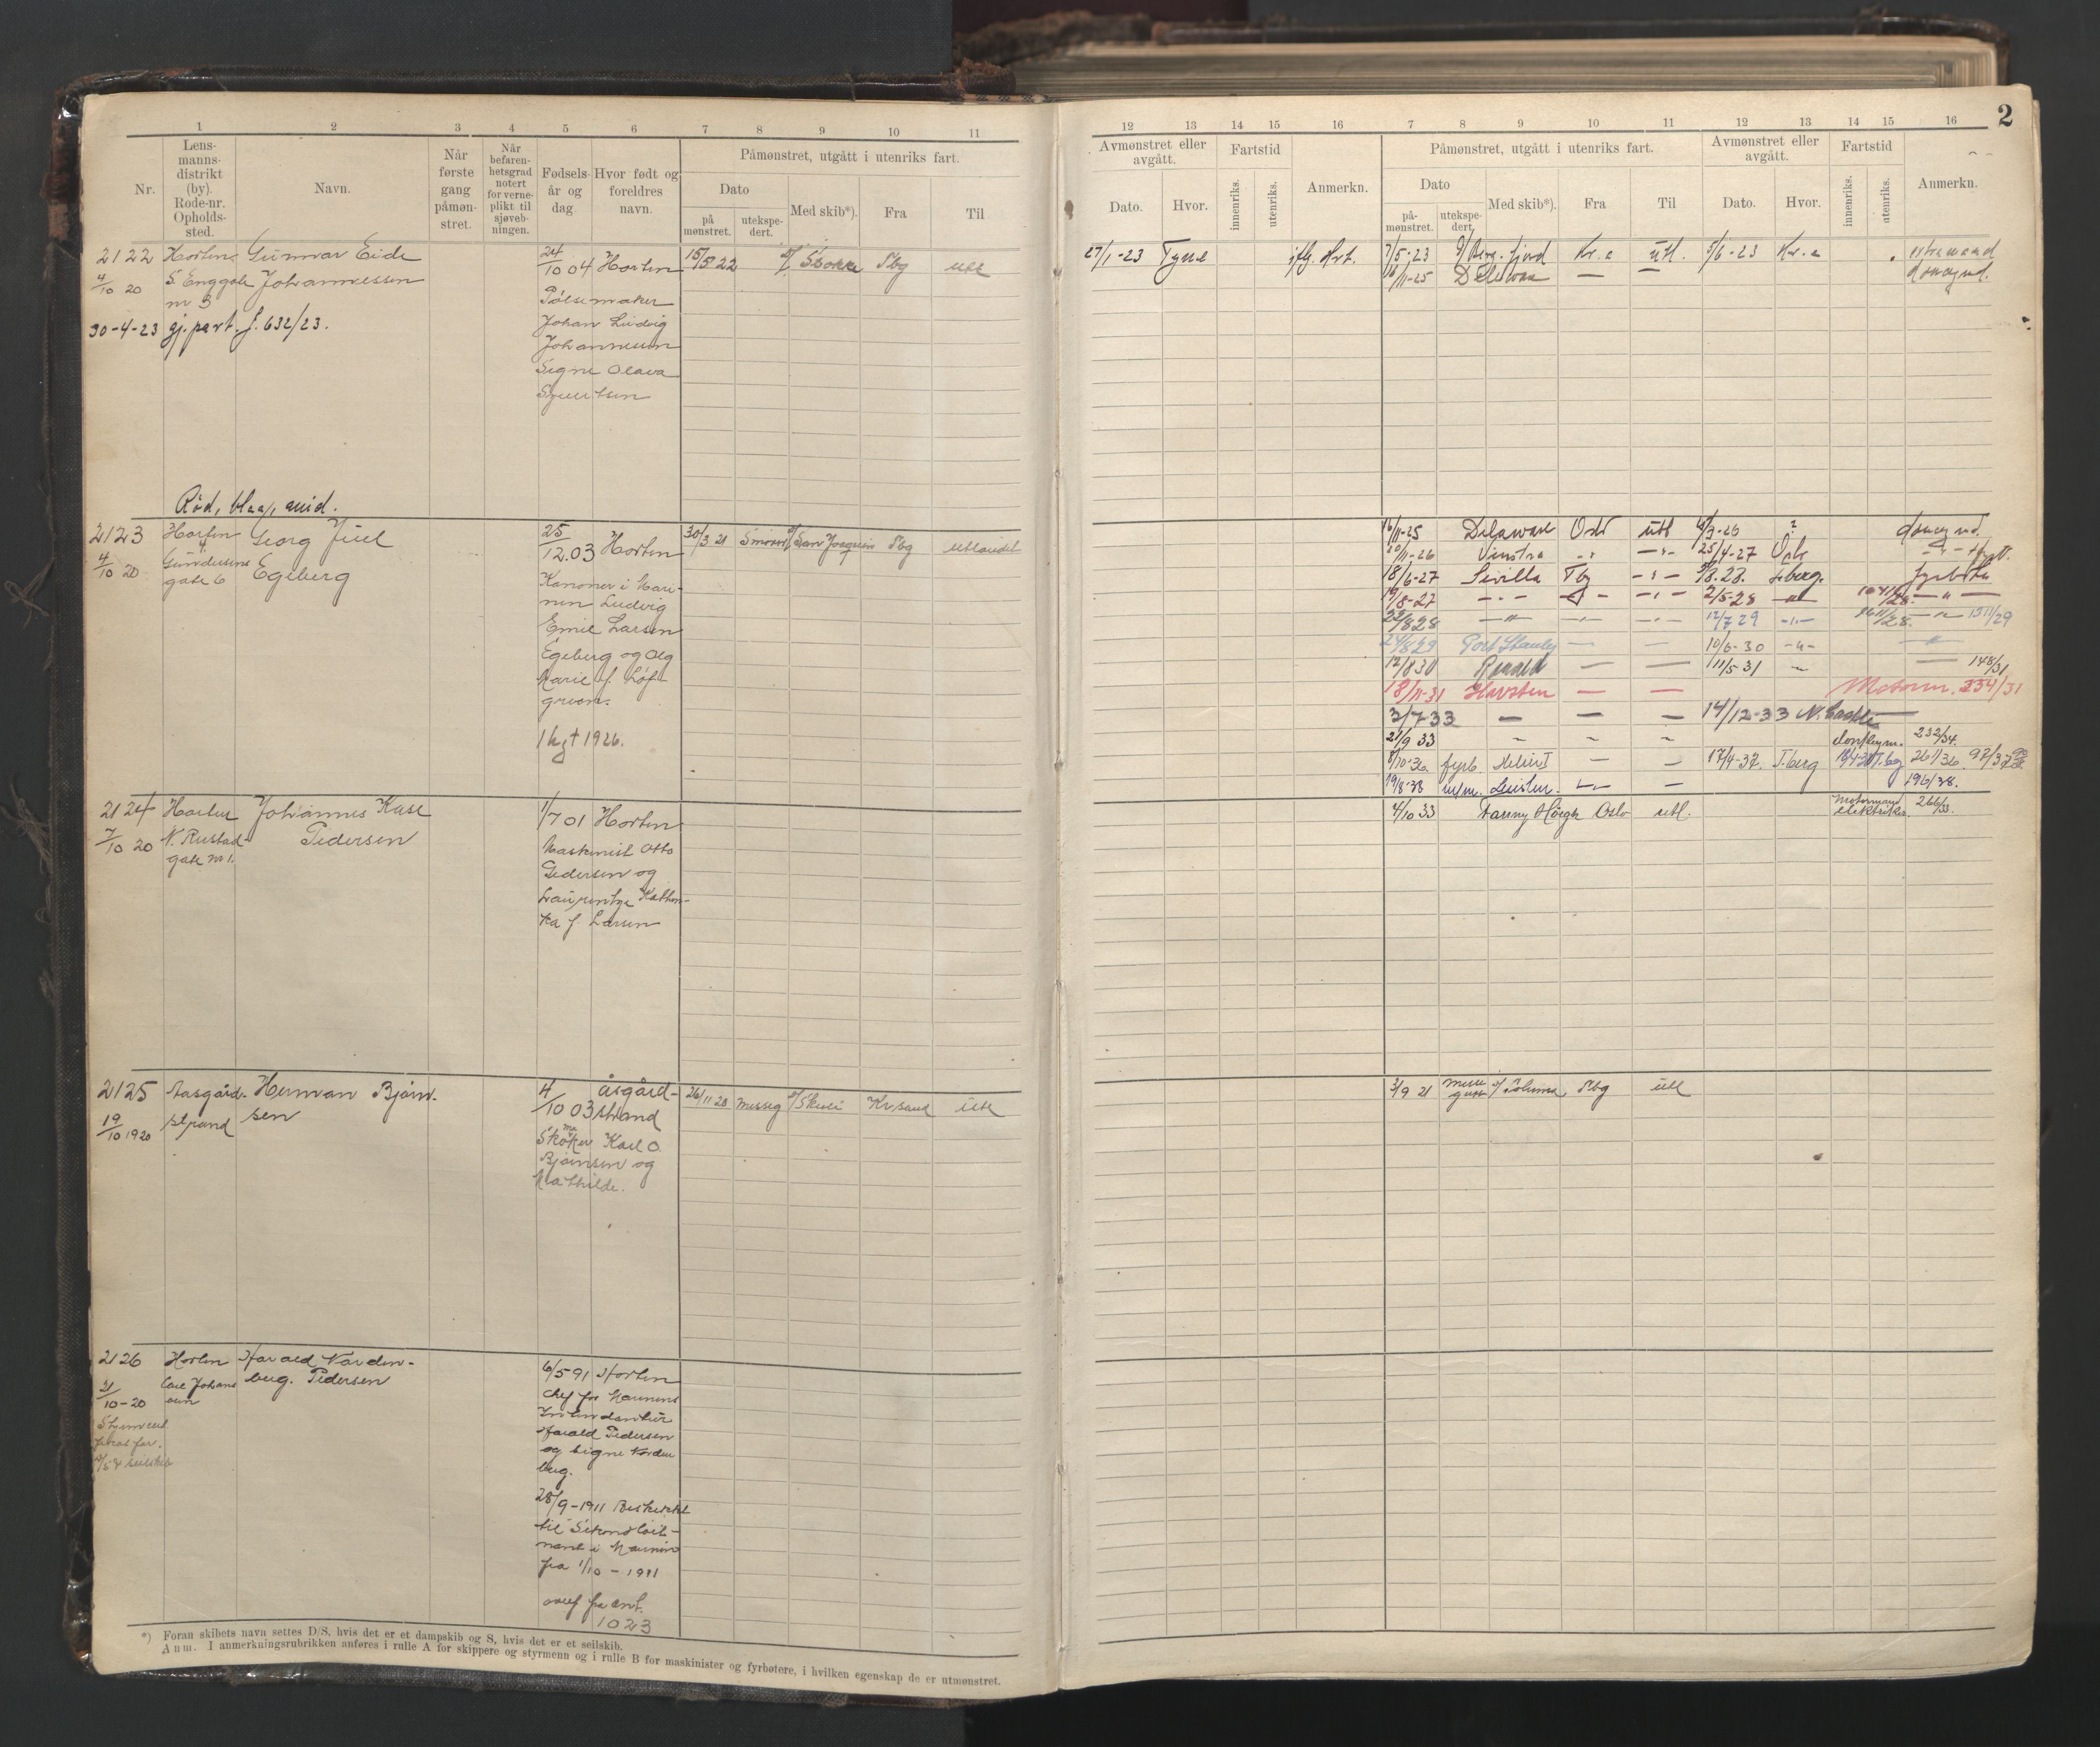 2
1 2 3 4 5 6 7 8 9 10 11
Nr.
Lens-
manns-
distrikt
(by).
Rode-nr.
Opholds-
sted.
Navn.
Når
første
gang
påmøn-
stret.
Når
befaren-
hetsgrad
notert
for verne-
plikt til
sjøveb-
ningen.
Fødsels-
år og
dag
Hvor født og
foreldres
navn.
Påmønstret, utgått i utenriks fart.
Dato
på
mønstret.
utekspe-
dert.
Med skib*).
Fra
Til
2122 Horten Gunnar Eide 24/10 04 Horten 15/5 22 Stokke Tbg utl
4/10 20 S. Enggate Johannessen
nr 3
Pølsemaker
30-4-23 gj. part. f. 632/23.
Johan Ludvig
Johannessen
Signe Olava
Rød, blaa, mid.
2123 Horten Georg Juel 25/12.03 Horten 30/3 21 Smører San Joaquin Tbg utlandet
4/10 20 Gundersens
gate 6 Egeberg
Kanoner i Mari-
nen Ludvig
Emil Larsen
Egeberg og Olg
Marie f. Løf-
green.
1926.
2124 Horten Johannes Kase 1/7 01 Horten
7/10 20 N. Rustad-
gate nr 1. Pedersen
Maskinist Otto
Pedersen og
Laurentze Kathin-
ka f. Larsen
2125 Aasgård- Herman Bjørn- 4/10 03 åsgård-
strand 26/11 20 messeg Skuli Kr.sand utl
19/10 1920 strand sen
Skomaker Karl O.
Bjørnsen og
Mathilde.
2126 Horten Harald Norden- 6/5 91 Horten
21/10-20 Carl Johans berg. Pedersen
chef for Marinens
Intendantur
Harald Pedersen
og Signe Norden
berg.
28/9-1911 Beskikket
til Sekondløit-
nant i Marinen
fra 1/10 - 1911
overf fra ant.
1023
*) Foran skibets navn settes D/S, hvis det er et dampskib og S, hvis det er et seilskib.
Anm. I anmerkningsrubrikken anføres i rulle A for skippere og styrmenn og i rulle B for maskinister og fyrbøtere, i hvilken egenskap de er utmønstret.
12 13 14 15 16 7 8 9 10 11 12 13 14 15 16
Avmønstret eller
avgått.
Dato.
Hvor.
Fartstid
innenriks.
utenriks.
Anmerkn.
Påmønstret, utgått i utenriks fart.
Dato
på-
mønstret.
utekspe-
dert.
Med skib*).
Fra
Til
Avmønstret eller
avgått.
Dato.
Hvor.
Fartstid
innenriks.
utenriks.
Anmerkn.
27/1-23 Tyne jfg. Hrt. 7/5-23 Berg.fjord Kr.a utl. 5/6-23 Kr.a extramand
16/11-25 Delawar — donkeymd.
16/11-25 Delaware Oslo utl 6/3-26 ? donkeymd.
20/11-26 Vinstra -"- -"- 25/4-27 Oslo
18/6-27 Sevilla Tbg -"- T.berg.
19/8-27 -"- -"- -"- 2/5-28 -"-
22/8 28 -"- -"- -"- 12/7 29 -"- 1511/29
24/8 29 Port Stanley — — 10/6-30 -"-
12/8 30 Ranald — — 111/5-31 — 148/31
18/11-31 Havsten — — Motorm. 334/31
3/7-33 — — — 14/12-33 N. Castle
21/9 33 — — — donkeym. 232/34.
8/10-36 fyrb. — — 17/4-37. T.berg 261/36. 97/37
19/8-38 m/m. 196/38.
4/10 33 Fanny Høegh Oslo utl. Motormand
elektriker. 266/33.
3/9 21 messe
gutt Tbg utl